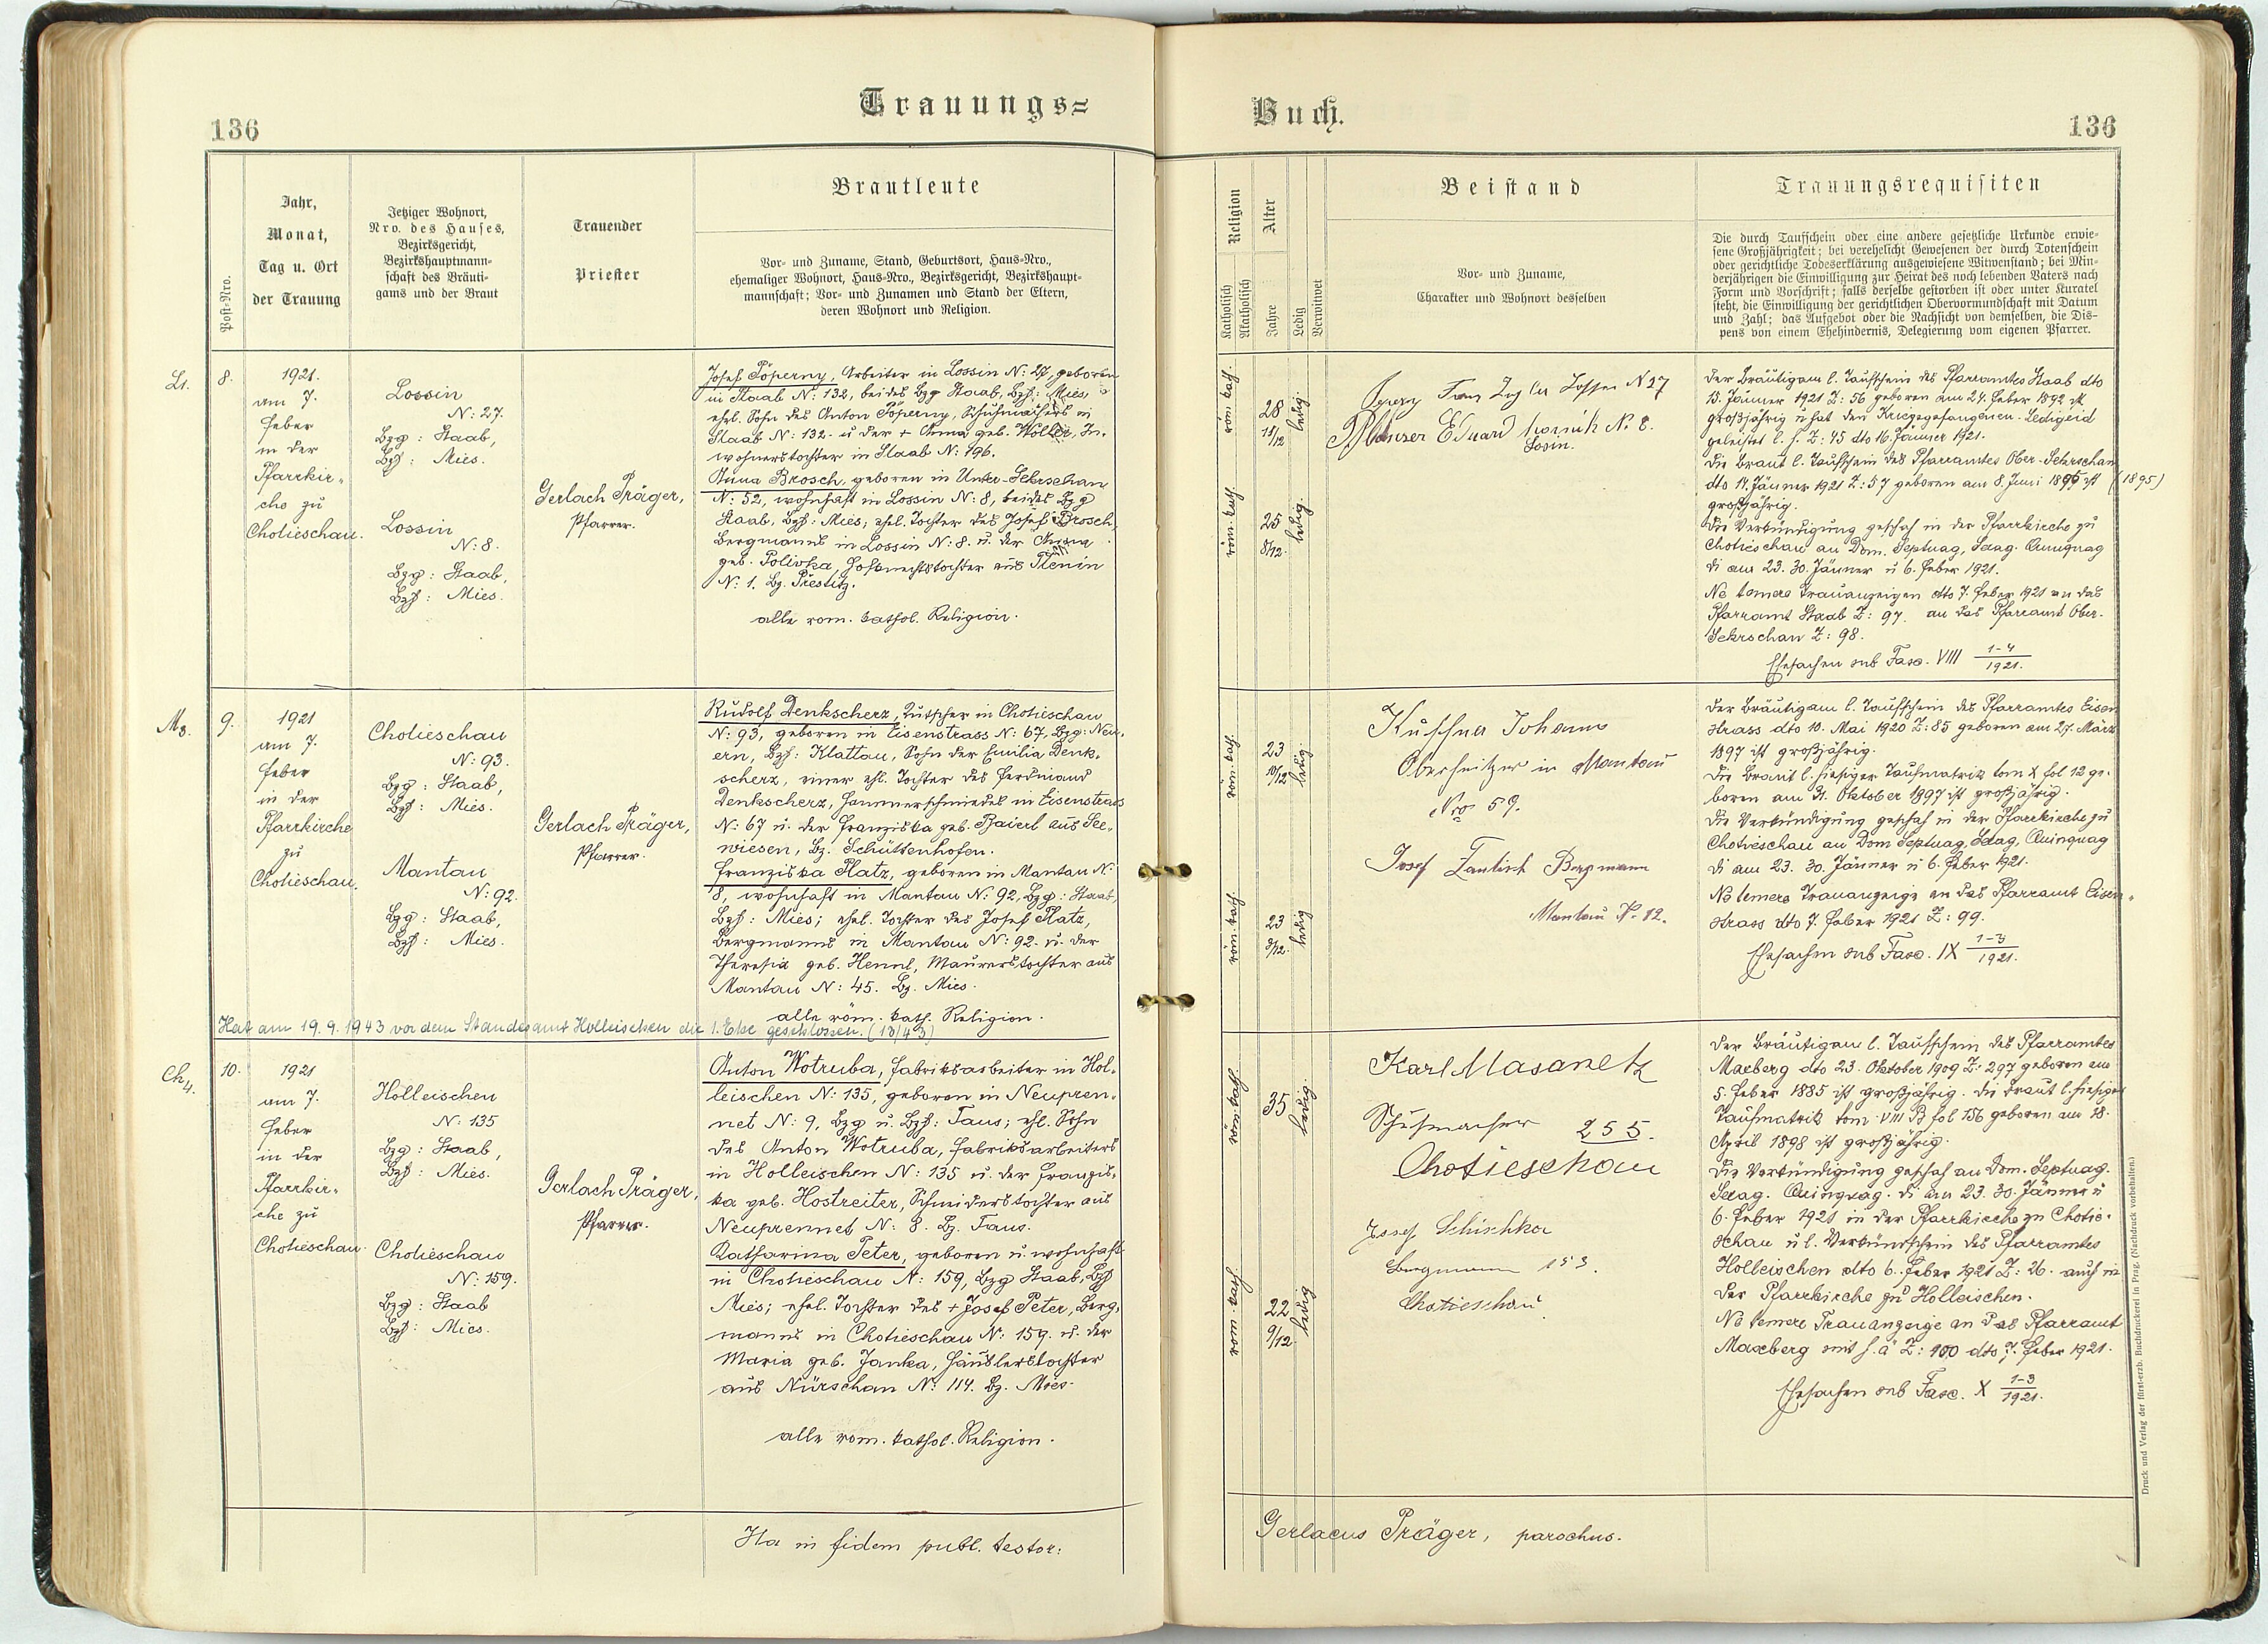 Trauungs=
Buch.
136
136
Post-Nro.
Jahr,
Monat,
Tag u. Ort
der Trauung
Jetziger Wohnort,
Nro. des Hauses,
Bezirksgericht,
Bezirkshauptmann-
schaft des Bräuti-
gams und der Braut
Trauender
Priester
Brautleute
Vor- und Zuname, Stand, Geburtsort, Haus-Nro.,
ehemaliger Wohnort, Haus-Nro., Bezirksgericht, Bezirkshaupt-
mannschaft; Vor- und Zunamen und Stand der Eltern,
deren Wohnort und Religion.
Religion
Katholisch
Akatholisch
Alter
Jahre
Ledig
Verwitwet
Beistand
Vor- und Zuname,
Charakter und Wohnort desselben
Trauungsrequisiten
Die durch Taufschein oder eine andere gesetzliche Urkunde erwie-
sene Großjährigkeit; bei verehelicht Gewesenen der durch Totenschein
oder gerichtliche Todeserklärung ausgewiesene Witwenstand; bei Min-
derjährigen die Einwilligung zur Heirat des noch lebenden Vaters nach
Form und Vorschrift; falls derselbe gestorben ist oder unter Kuratel
steht, die Einwilligung der gerichtlichen Obervormundschaft mit Datum
und Zahl; das Aufgebot oder die Nachsicht von demselben, die Dis-
pens von einem Ehehindernis, Delegierung vom eigenen Pfarrer.
8.
1921.
am 7.
Feber
in der
Pfarrkir-
che zu
Chotieschau.
Lossin
N: 27.
Bzg: Staab,
Bzh: Mies.
Lossin
N: 8.
Bzg: Staab,
Bzh: Mies.
Gerlach Präger,
Pfarrer.
Josef Pöperny, Arbeiter in Lossin N: 27, geboren
in Staab N: 132, beides Bzg Staab, Bzh: Mies,
ehl. Sohn des Anton Pöperny, Schuhmachers in
Staab N: 132. u der + Anna geb. Wöller, In-
wohnerstochter in Staab N: 196.
Anna Brosch, geboren in Unter-Sekrschan
N: 52, wohnhaft in Lossin N: 8, beides Bzg
Staab, Bzh: Mies; ehel. Tochter des Josef Brosch,
Bergmanns in Lossin N: 8. u. der Anna
geb. Polivka, Hofknechtstochter aus Plenin
N: 1. Bz. Prestitz.
alle rom. kathol. Religion.
röm. kath.
28
11/12
ledig.
röm. kath.
25
8/12
ledig.
Franz Lossin N 27
Eduard N: 8.
Losin.
Der Bräutigam l. Taufschein des Pfarramtes Staab dto
15. Jänner 1921 Z: 56 geboren am 24. Feber 1892 ist
großjährig u hat den Kriegsgefangenen-Ledigeid
geleistet l. h. Z: 45 dto 16. Jänner 1921.
Die Braut l. Taufschein des Pfarramtes Ober-Sekrschan
dto 17. Jänner 1921 Z: 57 geboren am 8. Juni 1895 ist (1895)
großjährig.
Die Verkündigung geschah in der Pfarrkirche zu
Chotieschau an Dom. Septuag, Sexag. Quinquag
di am 23. 30. Jänner u 6. Feber 1921.
Ne temere Trauanzeigen dto 7. Feber 1921 an das
Pfarramt Staab Z: 97. an das Pfarramt Ober-
Sekrschan Z: 98.
Ehesachen sub Fasc. VIII 1-4/1921.
9.
1921
am 7.
Feber
in der
Pfarrkirche
zu
Chotieschau.
Chotieschau
N: 93.
Bzg: Staab,
Bzh: Mies.
Mantau
N: 92.
Bzg: Staab,
Bzh: Mies.
Gerlach Präger,
Pfarrer.
Rudolf Denkscherz, Kutscher in Chotieschau
N: 93, geboren in Eisenstrass N: 67, Bzg: Neu-
ern, Bzh: Klattau, Sohn der Emilia Denk-
scherz, einer ehl. Tochter des Ferdinand
Denkscherz, Hammerschmiedes in Eisenstrass
N: 67 u. der Franziska geb. Baierl aus See-
wiesen, Bz. Schüttenhofen.
Franziska Platz, geboren in Mantau N:
8, wohnhaft in Mantau N: 92, Bzg: Staab,
Bzh: Mies; ehel. Tochter des Josef Platz,
Bergmanns in Mantau N: 92. u. der
Theresia geb. Hennl, Maurerstochter aus
Mantau N: 45. Bz. Mies.
alle röm. kath. Religion.
Hat am 19. 9. 1943 vor dem Standesamt Holleischen die 1. Ehe geschlossen. (13/43)
röm. kath.
23
10/12
ledig.
röm. kath.
23
3/12.
ledig
Johann
in Mantau
Nro 59.
Josef Bergmann
Mantau N. 12.
Der Bräutigam l. Taufschein des Pfarramtes Eisen
strass dto 10. Mai 1920 Z: 85 geboren am 27. März
1897 ist großjährig.
Die Braut l. hiesiger Taufmatrik tom X fol 12 ge-
boren am 31. Oktober 1897 ist großjährig.
Die Verkündigung geschah in der Pfarrkirche zu
Chotieschau an Dom Septuag, Sexag, Quinquag
di am 23. 30. Jänner u 6. Feber 1921.
Ne temere Trauanzeige an das Pfarramt Eisen-
strass dto 7. Feber 1921 Z: 99.
Ehesachen sub Fasc. IX 1-3/1921.
10.
1921
am 7.
Feber
in der
Pfarrkir-
che zu
Chotieschau.
Holleischen
N: 135
Bzg: Staab,
Bzh: Mies.
Chotieschau
N: 159.
Bzg: Staab
Bzh: Mies.
Gerlach Präger,
Pfarrer.
Anton Wotruba, Fabriksarbeiter in Hol-
leischen N: 135, geboren in Neupren-
net N: 9, Bzg u. Bzh: Taus; ehl. Sohn
des Anton Wotruba, Fabriksarbeiters
in Holleischen N: 135 u. der Franzis-
ka geb. Hostreiter, Schneiderstochter aus
Neuprennet N: 8. Bz. Taus.
Katharina Peter, geboren u. wohnhaft
in Chotieschau N: 159, Bzg Staab, Bzh
Mies; ehel. Tochter des + Josef Peter, Berg-
manns in Chotieschau N: 159. u. der
Maria geb. Janka, Häuslerstochter
aus Nürschan N: 114. Bz. Mies.
alle rom. kathol. Religion.
röm. kath.
35
ledig.
rom. kath.
22
9/12.
ledig
Karl Masanetz
Schuhmacher 255.
Chotieschau
Josef Schischka
Bergmann 153.
Chotieschau
Der Bräutigam l. Taufschein des Pfarramtes
Maxberg dto 23. Oktober 1909 Z: 297 geboren am
5. Feber 1885 ist großjährig. Die Braut l. hiesiger
Taufmatrik tom VIII B fol 156 geboren am 18.
April 1898 ist großjährig.
Die Verkündigung geschah an Dom. Septuag.
Sexag. Quinquag. di am 23. 30. Jänner u
6. Feber 1921 in der Pfarrkirche zu Chotie-
schau u l. Verkündschein des Pfarramtes
Holleischen dto 6. Feber 1921 Z: 26. auch in
der Pfarrkirche zu Holleischen.
Ne temere Trauanzeige an das Pfarramt
Maxberg sint h. a Z: 100 dto 7. Feber 1921.
Ehesachen sub Fasc. X 1-3/1921.
Ita in fidem publ. testor:
Gerlacus Präger, parochus.
Druck und Verlag der fürst-erzb. Buchdruckerei in Prag. (Nachdruck vorbehalten.)